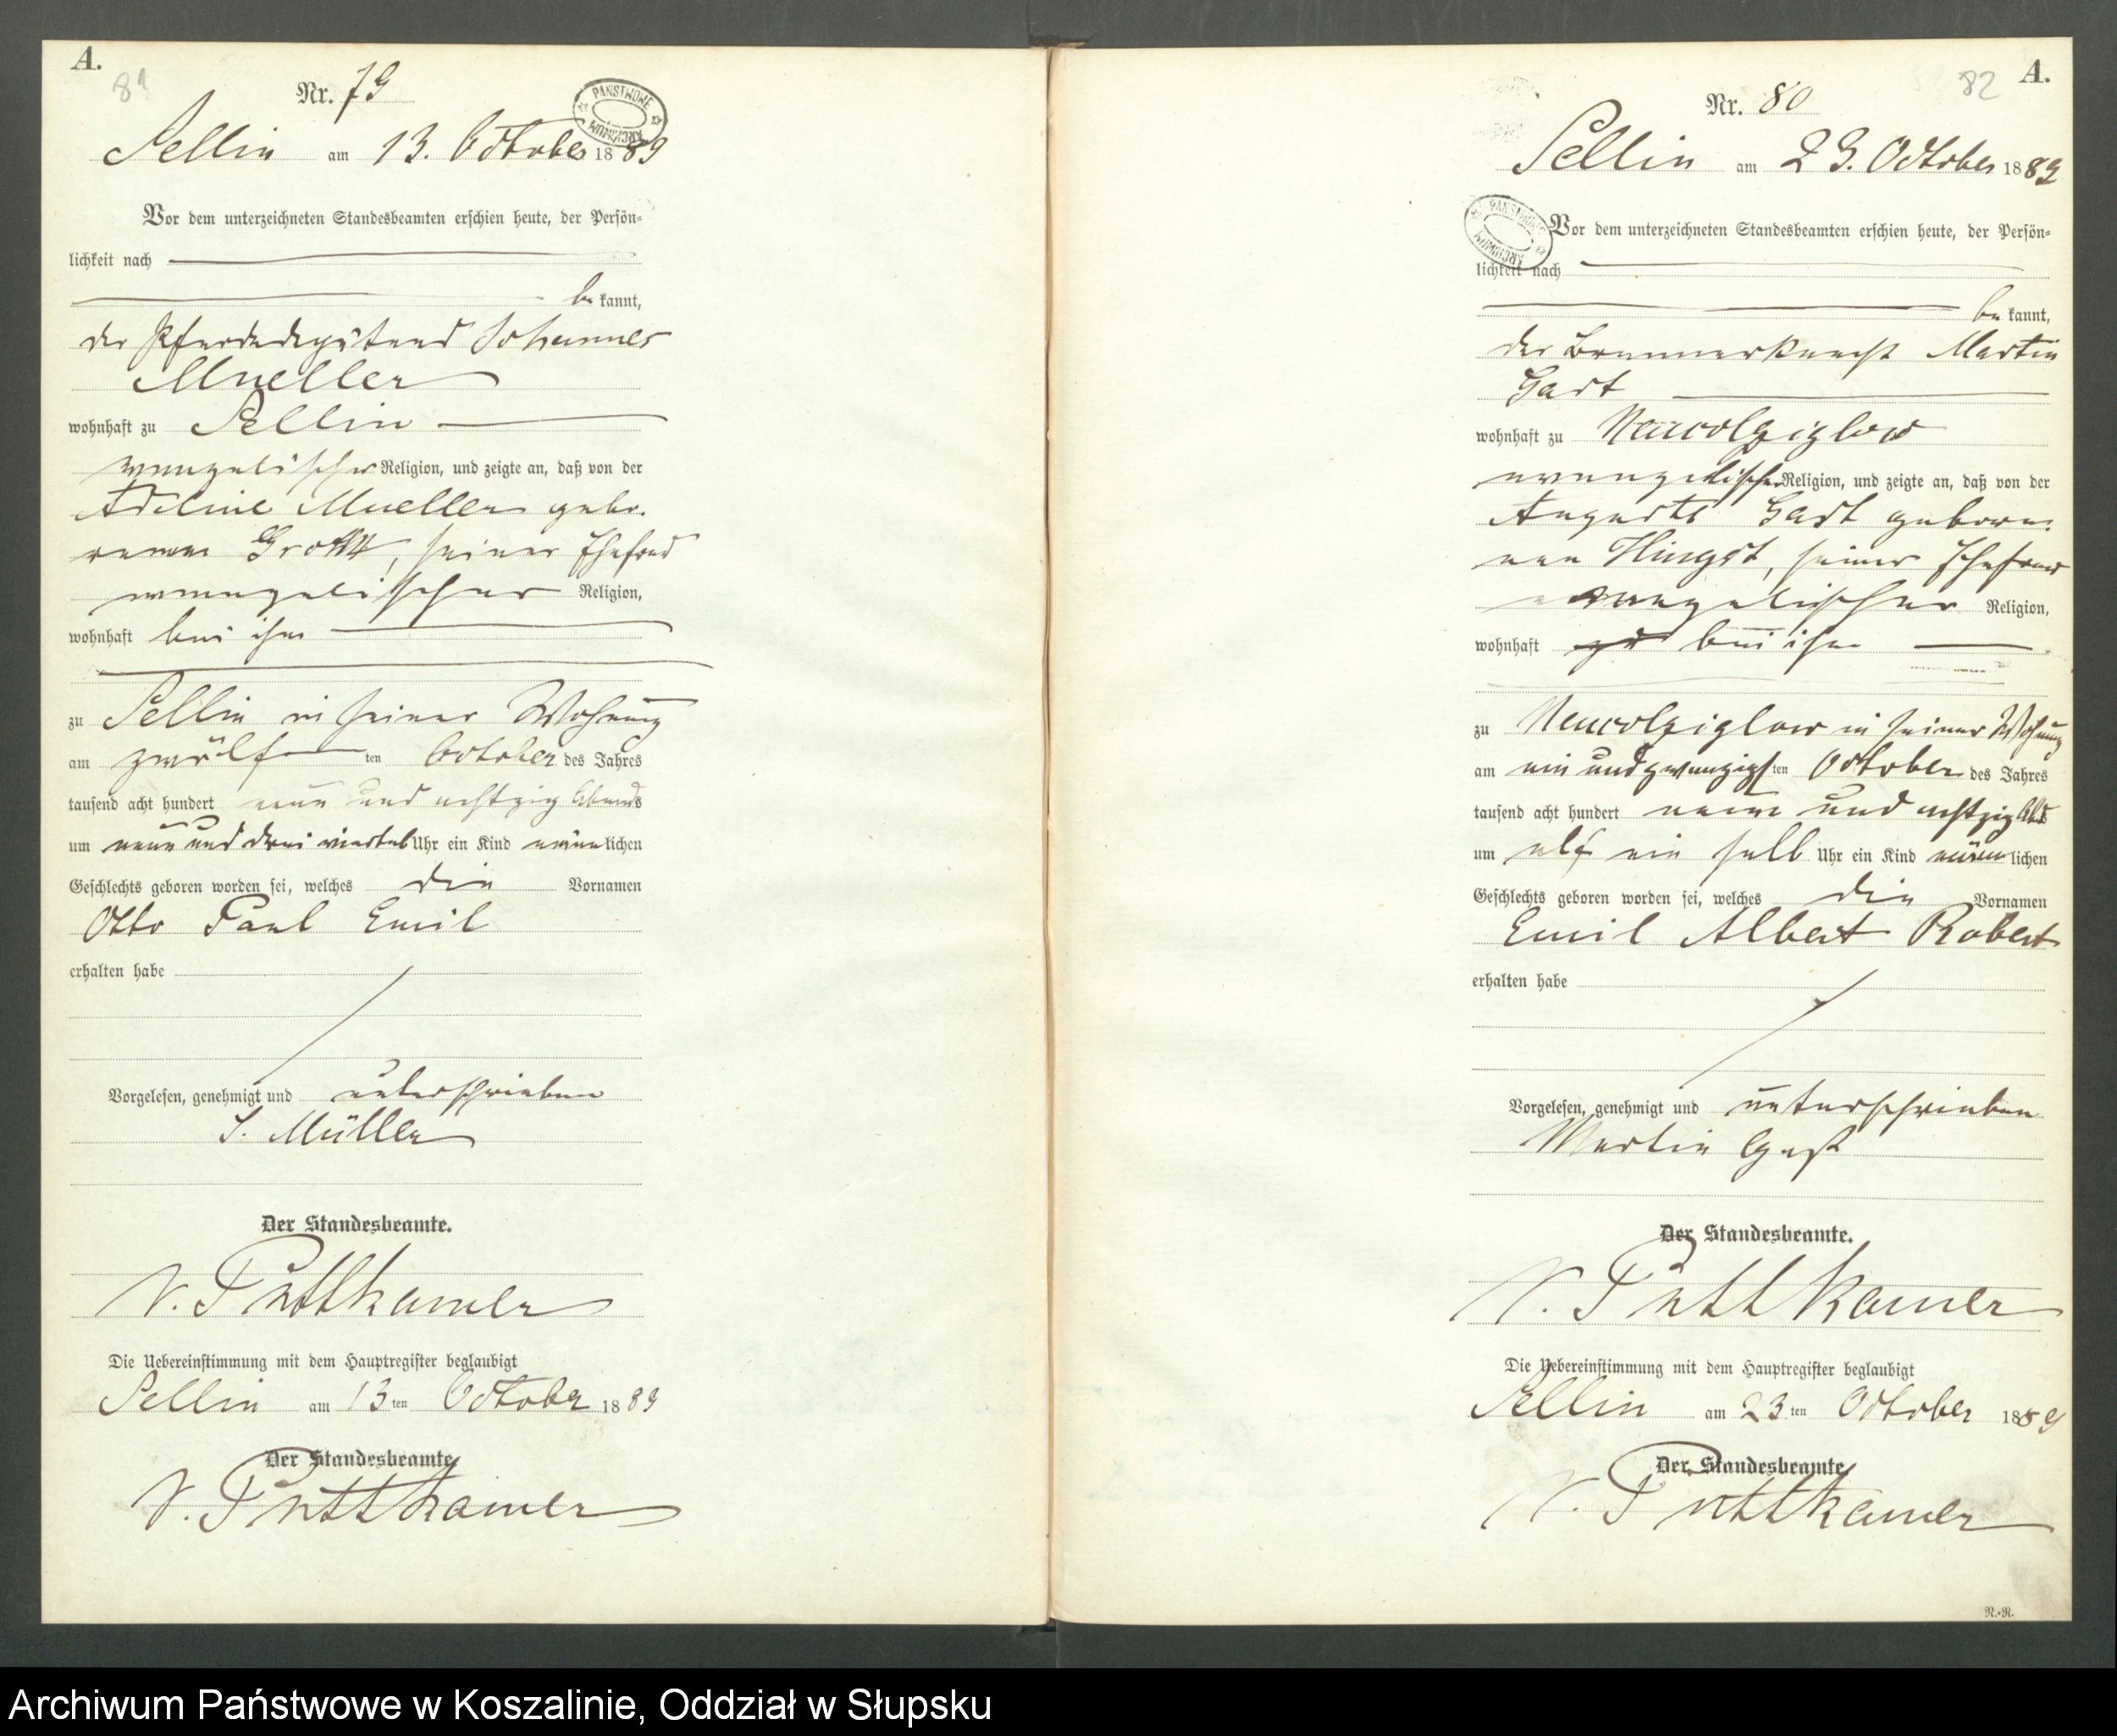 A.
81
Nr. 79
PAŃSTWOWE ARCHIWUM
Sellin am 13. October 1889
Vor dem unterzeichneten Standesbeamten erschien heute, der Persön-
lichkeit nach
be kannt,
der Johannes
Mueller
wohnhaft zu Sellin
evangelischer Religion, und zeigte an, daß von der
Adeline Mueller gebo-
renen, seiner Ehefrau
evangelischer Religion,
wohnhaft bei ihm
zu Sellin in seiner Wohnung
am zwölf ten October des Jahres
tausend acht hundert neun und achtzig Abends
um neun und drei viertel Uhr ein Kind männlichen
Geschlechts geboren worden sei, welches die Vornamen
Otto Paul Emil
erhalten habe
Vorgelesen, genehmigt und unterschrieben
J. Müller
Der Standesbeamte.
v. Puttkamer
Die Uebereinstimmung mit dem Hauptregister beglaubigt
Sellin am 13 ten October 1889
Der Standesbeamte
v. Puttkamer
A.
82
Nr. 80
PAŃSTWOWE ARCHIWUM
Sellin am 23. October 1889
Vor dem unterzeichneten Standesbeamten erschien heute, der Persön-
lichkeit nach
be kannt,
der Martin
Gast
wohnhaft zu Neucolziglow
evangelischer Religion, und zeigte an, daß von der
Auguste Gast gebore-
nen Hingst, seiner Ehefrau
evangelischer Religion,
wohnhaft zu bei ihm
zu Neucolziglow in seiner Wohnung
am ein und zwanzigsten October des Jahres
tausend acht hundert neun und achtzig Abds
um elf ein halb Uhr ein Kind männlichen
Geschlechts geboren worden sei, welches die Vornamen
Emil Albert Robert
erhalten habe
Vorgelesen, genehmigt und unterschrieben
Martin Gast
Der Standesbeamte.
v. Puttkamer
Die Uebereinstimmung mit dem Hauptregister beglaubigt
Sellin am 23 ten October 1889
Der Standesbeamte
v. Puttkamer
N.-N.
Archiwum Państwowe w Koszalinie, Oddział w Słupsku